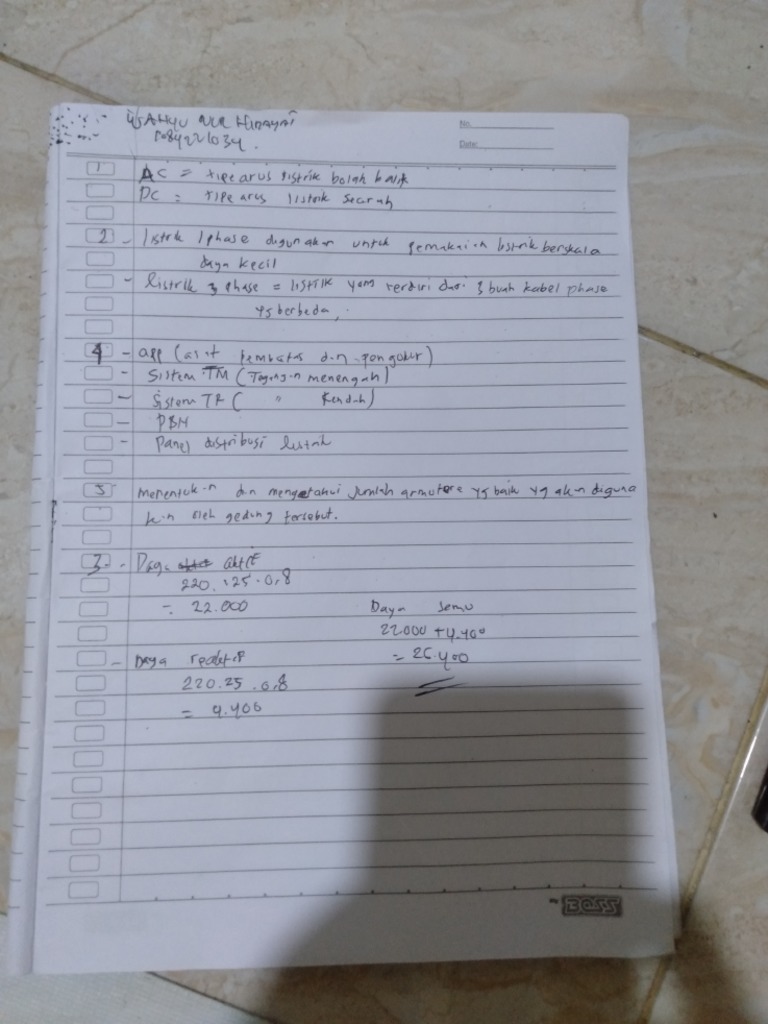 WAHYU NUR HIDAYAT
No.
Date:
1 AC = tipe arus listrik bolak balik
DC = tipe arus listrik searah
2 - listrik 1 phase digunakan untuk pemakaian listrik berskala
daya kecil
- listrik 3 phase = listrik yang terdiri dari 3 buah kabel phase
yg berbeda,
4 - app (alat pembatas dan pengukur)
- Sistem TM (Tegangan menengah)
- Sistem TR ( " Rendah)
-
- Panel distribusi listrik
5 menentukan dan mengetahui jumlah armature yg baik yg akan diguna
kan oleh gedung tersebut.
3 - Daya aktif
220. 125. 0,8
= 22.000
Daya semu
22.000 + 4.400
= 26.400
- Daya reaktif
220. 25. 0,8
= 4.400
BOSS